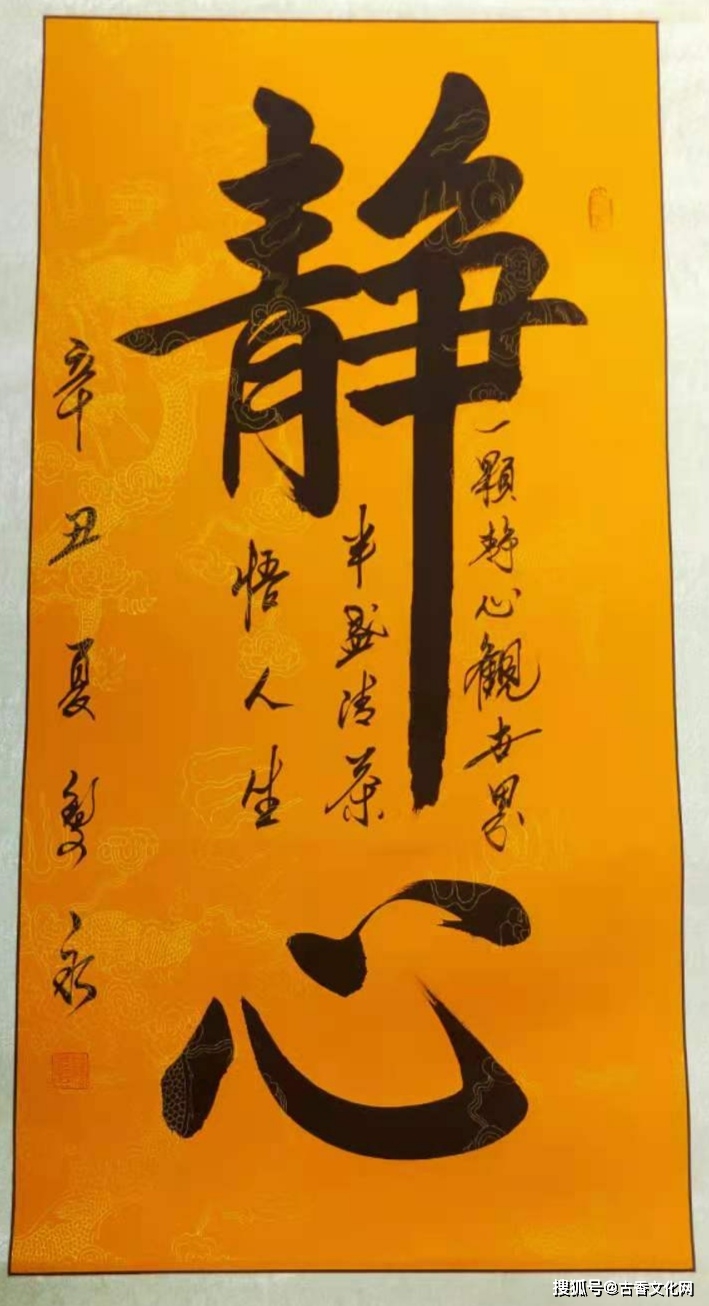 静心
一顆静心觀世界
半盞清茶
悟人生
辛丑夏永
搜狐号@古香文化网